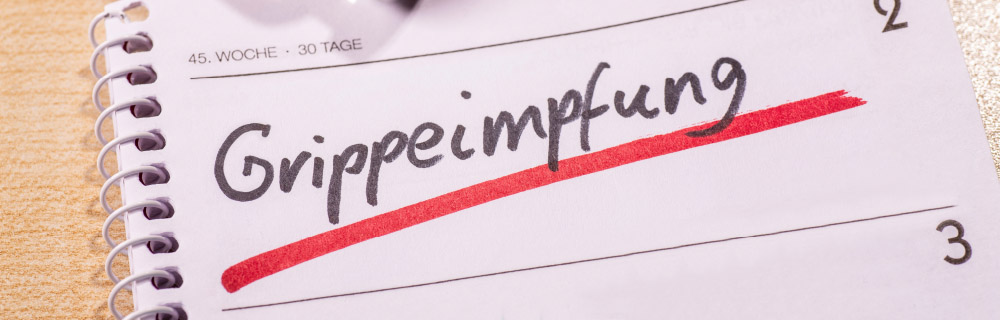 2
45. WOCHE · 30 TAGE
Grippeimpfung
3